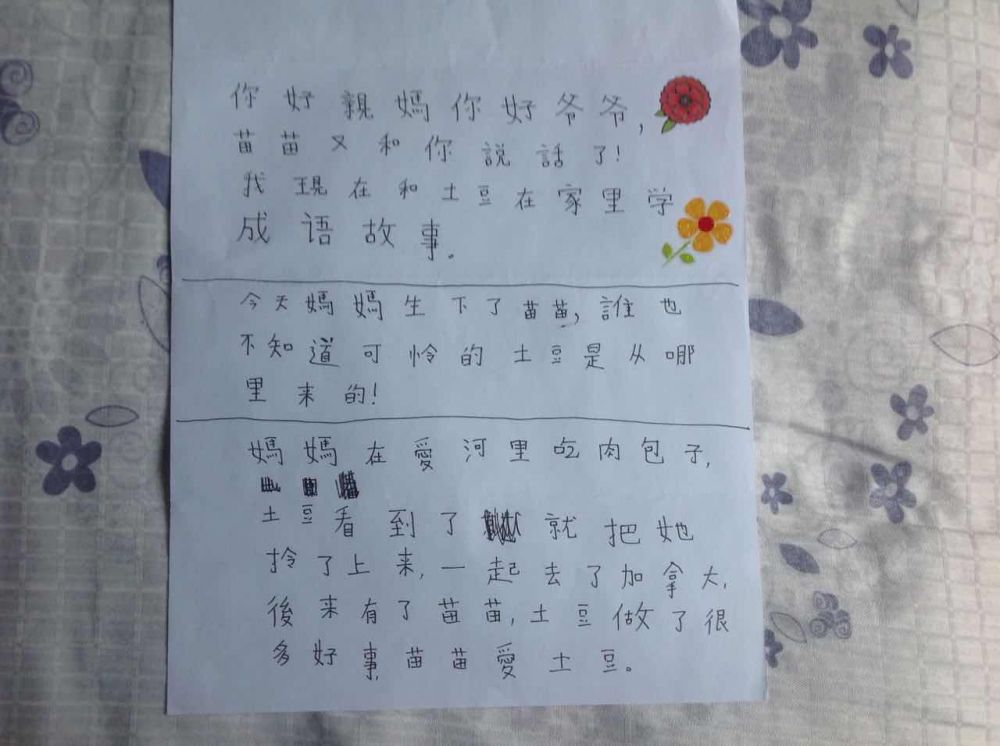 你好親媽你好爷爷,
苗苗又和你說話了!
我現在和土豆在家里学
成语故事。
今天媽媽生下了苗苗,誰也
不知道可怜的土豆是从哪
里来的!
媽媽在愛河里吃肉包子,
土豆看到了就把她
拎了上来,一起去了加拿大,
後来有了苗苗,土豆做了很
多好事,苗苗愛土豆。